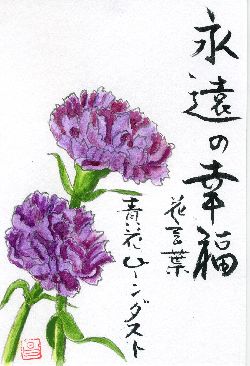 永遠の幸福
花言葉
青花ムーンダスト